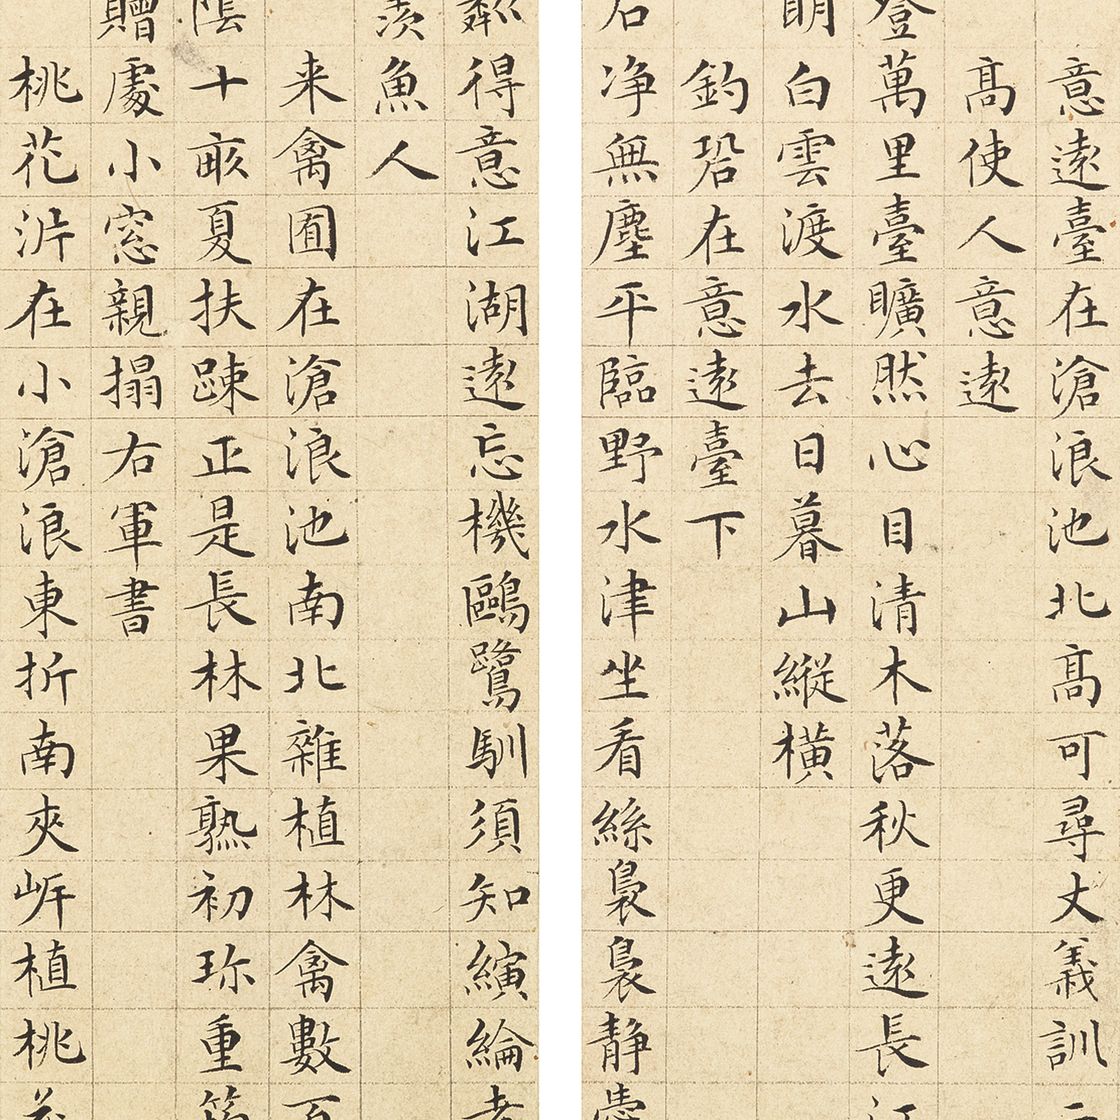 意遠臺在滄浪池北高可尋丈義訓
高使人意遠
登萬里臺曠然心目清木落秋更遠長江
明白雲渡水去日暮山縱橫
釣碧在意遠臺下
石净無塵平臨野水津坐看絲裊裊靜
得意江湖遠忘機鷗鷺馴須知縯綸者
羡魚人
来禽囿在滄浪池南北雜植林禽數百
陰十畝夏扶疎正是長林果熟初珎重筠
贈處小窓親搨右軍書
桃花沜在小滄浪東折南夾岍植桃